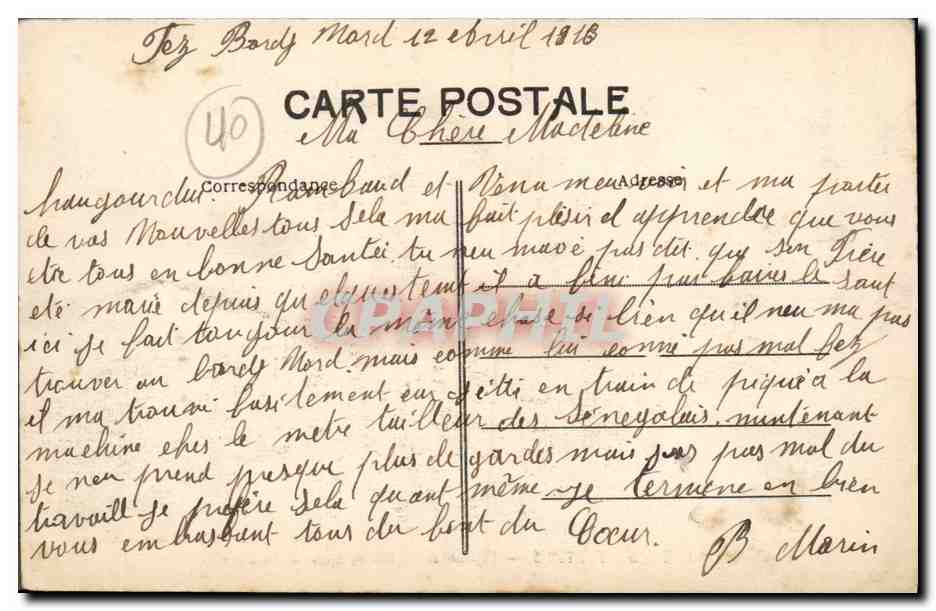 Fez Bordj Nord 12 Avril 1913
CARTE POSTALE
40
Ma Chère Madeleine
Correspondance
Adresse
haugourdui Rambaud et Venu me voir et ma porter
de vos Nouvelles tous sela ma fait plésir d apprendre que vous
ete tous en bonne Santéi tu neu mavé pas dit que son Frère
eté marié depuis quelquestemt il a bine pas baus le saut
ici je fait toujour la même chose si bien qu'il neu ma pas
trouver au bordj Nord mais comme lui conné pas mal Fez
il ma trouvé fasitement car jetté en train de piquéa la
machine ches le metre tailleur des Sénégalais. mintenant
je neu prend presque plus de gardes mais pas mal du
travaill je préfère sela quant même je termine en bien
vous embrassant tous du font du Cœur.
B Marin
CPAPHIL